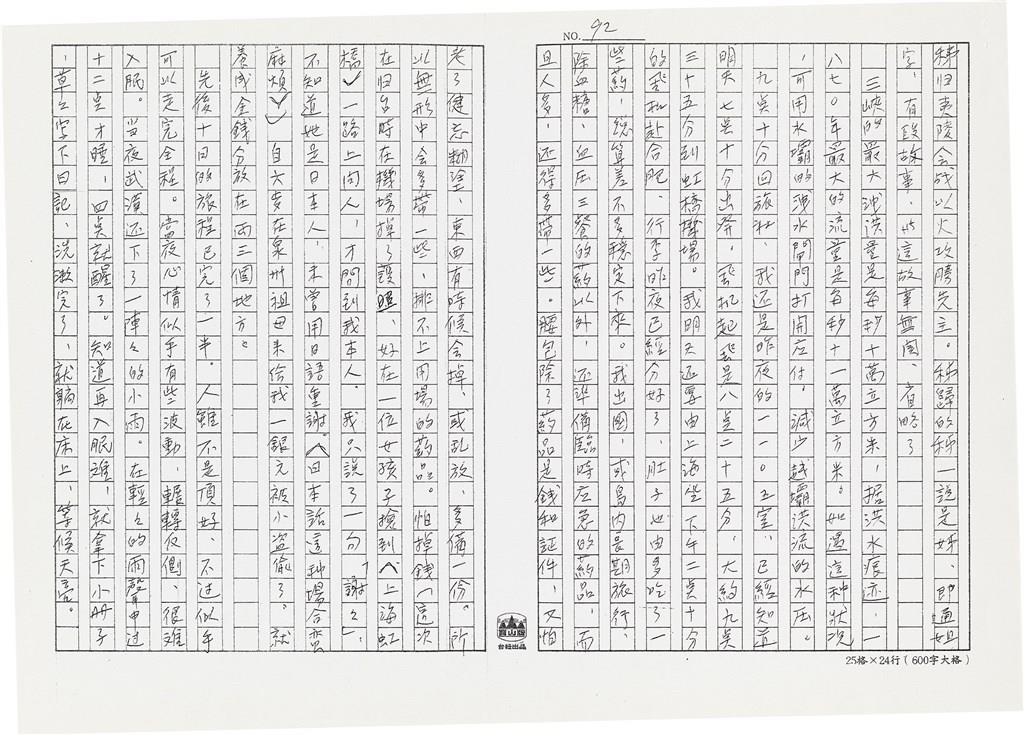 NO. 92
秭归夷陵会战以火攻勝先主。秭歸的秭一說是姊,即通姐
字,有段故事,此這故事無闻、省略了
三峽的最大洩洪量是每秒十萬立方米,据洪水痕迹,一
八七〇年最大的流量是每秒十一萬立方米。如遇這种狀況
,可用水壩的洩水閘門打開应付。減少越壩洪流的水压。
九吳十分回旅社、我还是昨夜的一一〇五室,已經知道
明天七吳十分出發,飛机起飛是八吳二十五分,大約九吳
三十五分到虹橋機場。我明天还要由上海坐下午二吳十分
的飛机赴合肥、行李昨夜已經分好了、肚子也由多吃了一
些葯,總算差不多穩定下來。我出國,或島内長期旅行、
除血糖、血压三餐的葯以外,还準備臨時应急的葯品,而
且人多,还得多帶一些。腰包除了葯品是錢和証件,又怕
老了健忘糊塗,東西有時候会掉、或乱放、多備一份。所
以無形中会多帶一些,排不上用場的葯品。怕掉錢(這次
在归台時在機場掉了護照、好在一位女孩子撿到(上海虹
橋)一路上问人,才問到我本人。我只說了一句「謝々」,
不知道她是日本人,未曾用日語重謝。(日本話這种場合蛮
麻煩)自六歲在泉州祖母来给我一銀元被小盗偷了。就
養成金錢分放在兩三個地方。
先後十日的旅程已完了一半。人雖不是頂好、不过似乎
可以走完全程。當夜心情似乎有些波動,輾轉反側、很难
入眠。当夜武漢还下了一陣々的小雨。在輕々的雨聲中过
十二吳才睡,四吳就醒了。知道再入眠难,就拿下小册子
,草々字下日記、洗漱完了、就躺在床上,等候天亮。
25格×24行(600字大格)
台紙出品